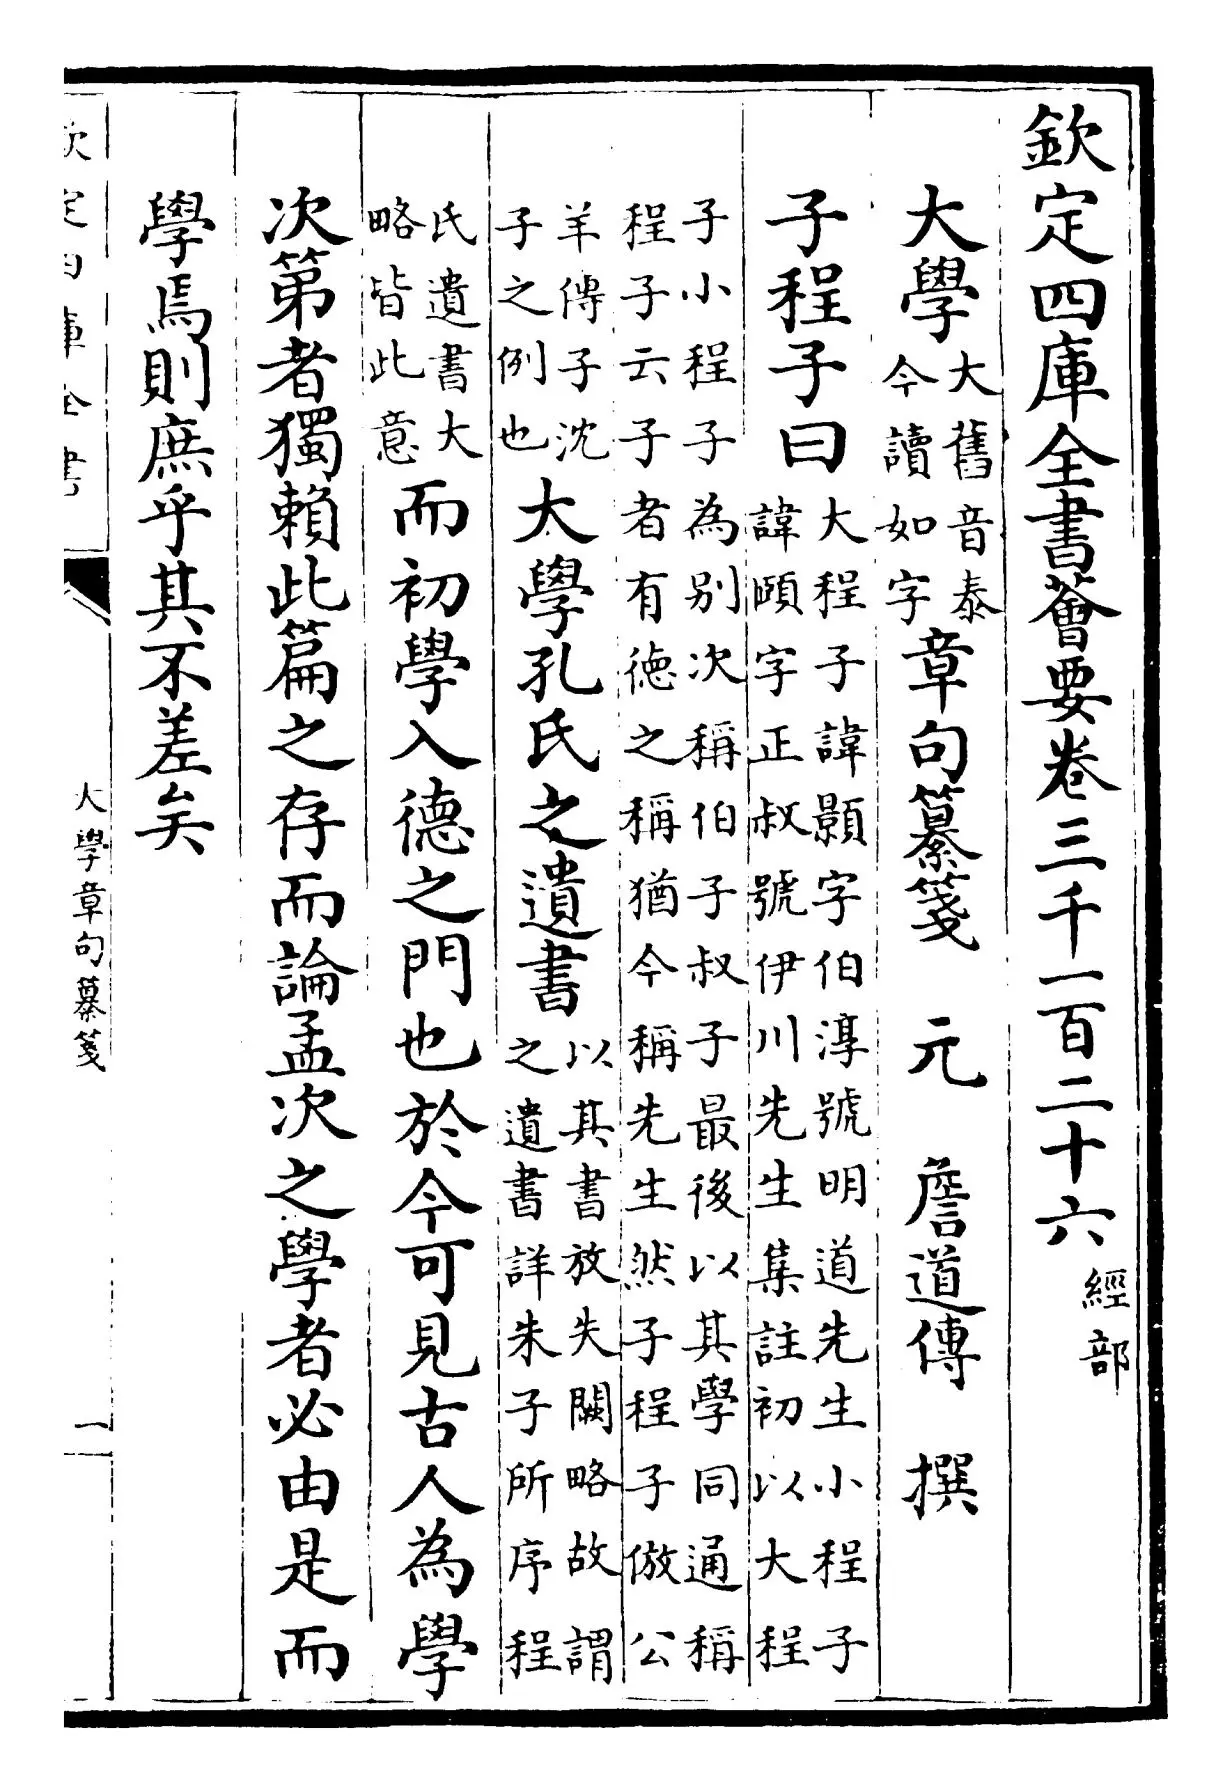 欽定四庫全書薈要卷三千一百二十六經部
大學大舊音泰今讀如字章句纂箋 元 詹道傳 撰
子程子曰大程子諱顥字伯淳號明道先生小程子諱頤字正叔號伊川先生集註初以大程
子小程子為別次稱伯子叔子最後以其學同通稱程子云子者有德之稱猶今稱先生然子程子倣公
羊傳子沈子之例也大學孔氏之遺書以其書放失闕略故謂之遺書詳朱子所序程
氏遺書大略皆此意而初學入德之門也於今可見古人為學
次第者獨賴此篇之存而論孟次之學者必由是而
學焉則庶乎其不差矣
欽定四庫全書 大學章句纂箋 一